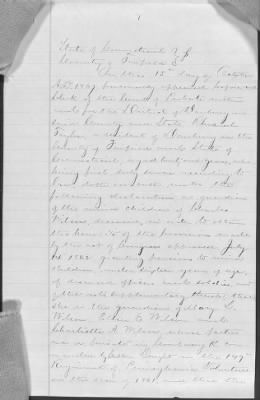 1
State of Connecticut }
County of Fairfield }
On this 15th day of October
A.D. 1867 personally appeared before me
Clerk of the Court of Probate within
and for the District of Danbury in
said County and State
a resident of Danbury in the
County of Fairfield and State of
Connecticut, aged years, who
being first duly sworn according to
law, doth on oath make the
following declaration as guardian
of the minor children of Charles
Wilson deceased, in order to obtain
the benefits of the provisions made
by the act of Congress approved July
14 1862 granting pensions to minor
children, under sixteen years of age,
of deceased officers and soldiers, and
of the acts supplementary thereto, that
she is the guardian of Mary L.
Wilson and
Charlotte A. Wilson, whose father
was a private in Company
commanded by in the 147th
Regiment of Pennsylvania Volunteers
in the war of 1861, and that the